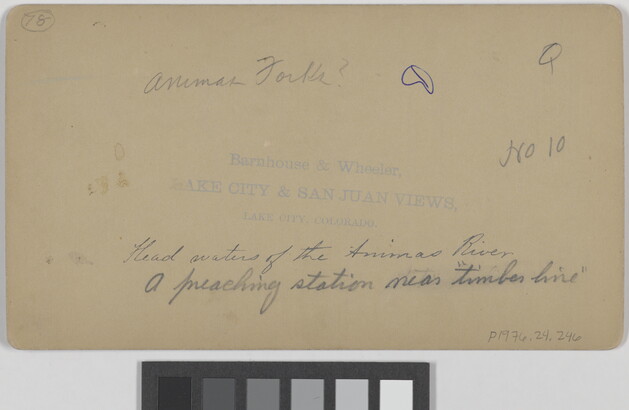 78
Q
Animas Forks?
No 10
Barnhouse & Wheeler,
LAKE CITY & SAN JUAN VIEWS,
LAKE CITY, COLORADO.
Head waters of the Animas River
A preaching station near "timber line"
P1976.24.246